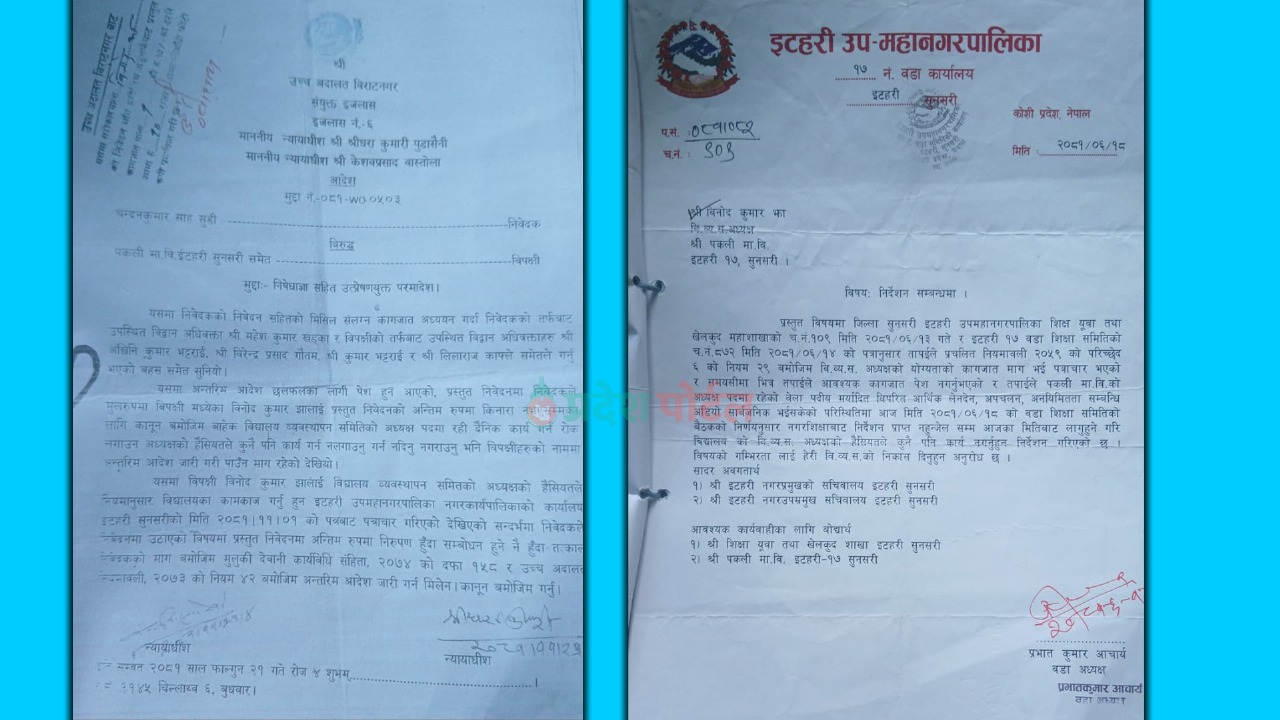 उच्च अदालत बिराटनगर बाट
श्री
उच्च अदालत बिराटनगर
संयुक्त इजलास
इजलास नं.-६
माननीय न्यायाधीश श्री श्रीधरा कुमारी पुडासैनी
माननीय न्यायाधीश श्री केशवप्रसाद बास्तोला
आदेश
मुद्दा नं.-०८१-WO-०५०३
चन्दनकुमार साह सुश्री ----------निवेदक
विरुद्ध
पकली मा.वि.ईटहरी सुनसरी समेत ----------विपक्षी
मुद्दाः- निषेधाज्ञा सहित उत्प्रेषणयुक्त परमादेश।
यसमा निवेदकको निवेदन सहितको मिसिल संलग्न कागजात अध्ययन गर्दा निवेदकको तर्फबाट
उपस्थित विद्वान अधिवक्ता श्री महेश कुमार खड्का र विपक्षीको तर्फबाट उपस्थित विद्वान अधिवक्ताहरू श्री
अखिनि कुमार भट्टराई, श्री विरेन्द्र प्रसाद गौतम, श्री कुमार भट्टराई र श्री लिलाराज काफ्ले समेतले गर्नु
भएको बहस समेत सुनियो।
यसमा अन्तरिम आदेश छलफलका लागी पेश हुन आएको, प्रस्तुत निवेदनमा निवेदकले
मुलरुपमा विपक्षी मध्येका विनोद कुमार झालाई प्रस्तुत निवेदनको अन्तिम रुपमा किनारा नभएसम्मका
लागि कानून बमोजिम बाहेक विद्यालय व्यवस्थापन समितिको अध्यक्ष पदमा रही दैनिक कार्य गर्न रोक
लगाउन अध्यक्षको हैसियतले कुनै पनि कार्य गर्न नलगाउनु गर्न नदिनु नगराउनु भनि विपक्षीहरुको नाममा
अन्तरिम आदेश जारी गरी पाउँन माग रहेको देखियो।
यसमां विपक्षी विनोद कुमार झालाई विद्यालय व्यवस्थापन समितिको अध्यक्षको हैसियतले
नियमानुसार विद्यालयका कामकाज गर्नु हुन इटहरी उपमहानगरपालिका नगरकार्यपालिकाको कार्यालय
इटहरी सुनसरीको मिति २०८१।११।०१ को पत्रबाट पत्राचार गरिएको देखिएको सन्दर्भमा निवेदकले
निवेदनमा उठाएको विषयमा प्रस्तुत निवेदनमा अन्तिम रुपमा निरुपण हुँदा सम्बोधन हुने नै हुँदा तत्काल
निवेदकको माग बमोजिम मुलुकी देवानी कार्यविधि संहिता, २०७४ को दफा १५८ र उच्च अदालत
नियमावली, २०७३ को नियम ४२ बमोजिम अन्तरिम आदेश जारी गर्न मिलेन।कानून बमोजिम गर्नु।
न्यायाधीश
न्यायाधीश
सम्बत २०८१ साल फाल्गुन २१ गते रोज ४ शुभम्..........।
११४५ चिल्लाथ्व ६, बुधबार।
प्रदेश पोर्टल
इटहरी उप-महानगरपालिका
१७ नं. वडा कार्यालय
इटहरी सुनसरी
कोशी प्रदेश, नेपाल
प.सं. : ०८१/०८२
च.नं. : ३०३
मिति : २०८१/०६/१८
श्री बिनोद कुमार झा
बि.व्य.स.अध्यक्ष
श्री पकली मा.वि.
इटहरी १७, सुनसरी ।
विषय: निर्देशन सम्बन्धमा ।
प्रस्तुत विषयमा जिल्ला सुनसरी इटहरी उपमहानगरपालिका शिक्ष यूवा तथा
खेलकुद महाशाखाको च.नं.१०९ मिति २०८१/०६/१३ गते र इटहरी १७ वडा शिक्षा समितिको
च.नं.८७२ मिति २०८१/०६/१४ को पत्रानुसार तापईले प्रचलित नियमावली २०५९ को परिच्छेद
६ को नियम २९ बमोजिम वि.व्य.स. अध्यक्षको योग्यताको कागजात माग भई पत्राचार भएको
र समयसीमा भित्र तपाईले आवश्यक कागजात पेश नगर्नुभएको र तपाईले पकली मा.वि.को
अध्यक्ष पदमा रहेको वेला पदीय मर्यादित विपरित आर्थिक लेनदेन, अपचलन, अनयिमितता सम्बन्धि
अडियो सार्वजनिक भईसकेको परिस्थितिमा आज मिति २०८१/०६/१८ को वडा शिक्षा समितिको
बैठकको निर्णयनुसार नगरशिक्षाबाट निर्देशन प्राप्त नहुन्जेल सम्म आजका मितिबाट लागुहुने गरि
विद्यालय को वि.व्य.स. अध्यक्षको हैसियतले कुनै पनि कार्य नगर्नुहुन निर्देशन गरिएको छ ।
विषयको गम्भिरता लाई हेरी वि.व्य.स.को निकास दिनुहुन अनुरोध छ ।
सादर अवगतार्थ
१) श्री इटहरी नगरप्रमुखको सचिवालय इटहरी सुनसरी
२) श्री इटहरी नगरउपप्रमुख सचिवालय इटहरी सुनसरी
आवश्यक कार्यवाहीका लागि बोधार्थ
१) श्री शिक्षा यूवा तथा खेलकुद शाखा इटहरी सुनसरी
२) श्री पकली मा.वि. इटहरी-१७ सुनसरी
प्रभात कुमार आचार्य
वडा अध्यक्ष
प्रभातकुमार आचार्य
वडा अध्यक्ष